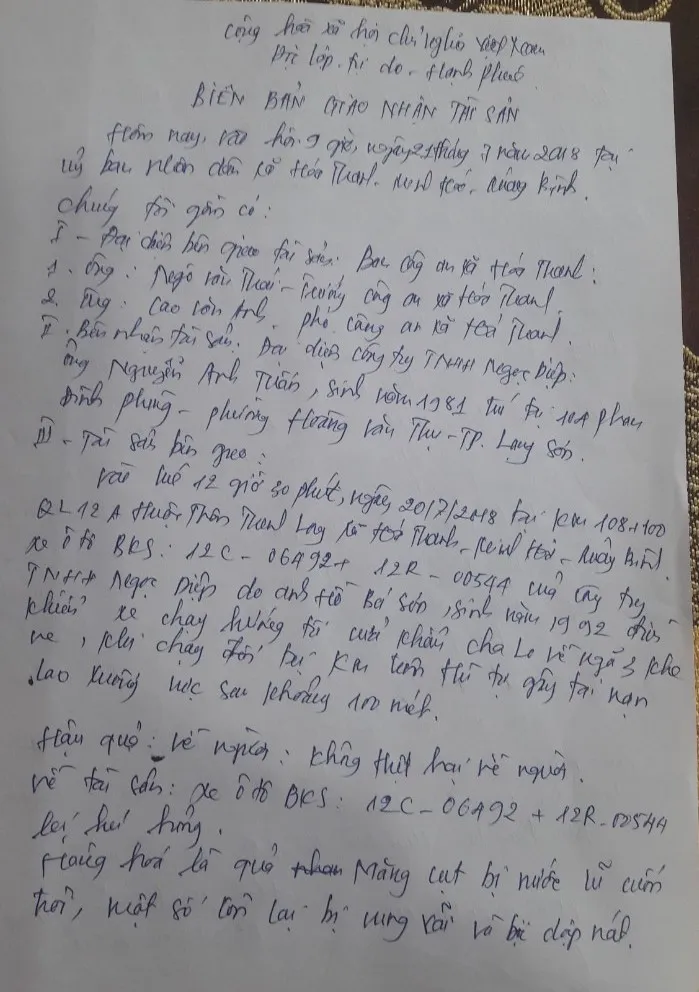 Cộng hoà xã hội chủ nghĩa Việt Nam
Độc lập - tự do - Hạnh phúc
BIÊN BẢN GIAO NHẬN TÀI SẢN
Hôm nay, vào hồi 9 giờ, ngày 21 tháng 7 năm 2018 tại
uỷ ban nhân dân xã Hoá Thanh - Minh Hoá - Quảng Bình.
Chúng tôi gồm có:
I - Đại diện bên giao tài sản: Ban công an xã Hoá Thanh:
1. Ông: Ngô văn Thái - Trưởng công an xã Hoá Thanh.
2. Ông: Cao văn Anh. phó công an xã Hoá Thanh.
II. Bên nhận tài sản. Đại diện công ty TNHH Ngọc Diệp:
Ông Nguyễn Anh Tuấn, sinh năm 1981 trú tại 101 phan
Đình phùng - phường Hoàng văn Thụ - TP. Lạng Sơn.
III - Tài sản bên giao:
vào lúc 12 giờ 30 phút, ngày 20/7/2018 tại Km 108+100
QL12A thuộc Thôn Thanh Long xã Hoá Thanh - Minh Hoá - Quảng Bình.
xe ô tô BKS: 12C - 06492 + 12R - 00544 của công ty
TNHH Ngọc Diệp do anh Hồ Bá Sơn, sinh năm 1992 điều
khiển xe chạy hướng từ cửa khẩu cha Lo về ngã 3 khe
ve, khi chạy tới tại Km trên thì tự gây tai nạn
lao xuống vực sâu khoảng 100 mét.
Hậu quả: về người: không thiệt hại về người.
về tài sản: xe ô tô BKS: 12C - 06492 + 12R - 00544
bị hư hỏng.
Hàng hoá là quả Măng cụt bị nước lũ cuốn
trôi, một số còn lại bị vung vãi và bị dập nát.